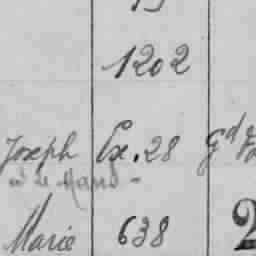 1202
Joseph Ex. 28 Gd
Marie 638 2